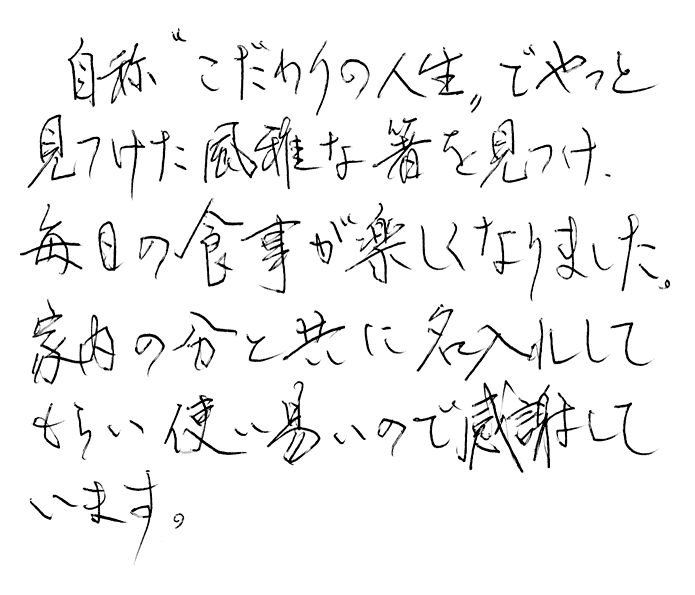 自称〝こだわりの人生〟でやっと
見つけた風雅な箸を見つけ、
毎日の食事が楽しくなりました。
家内の分と共に名入れして
もらい使い易いので感謝して
います。